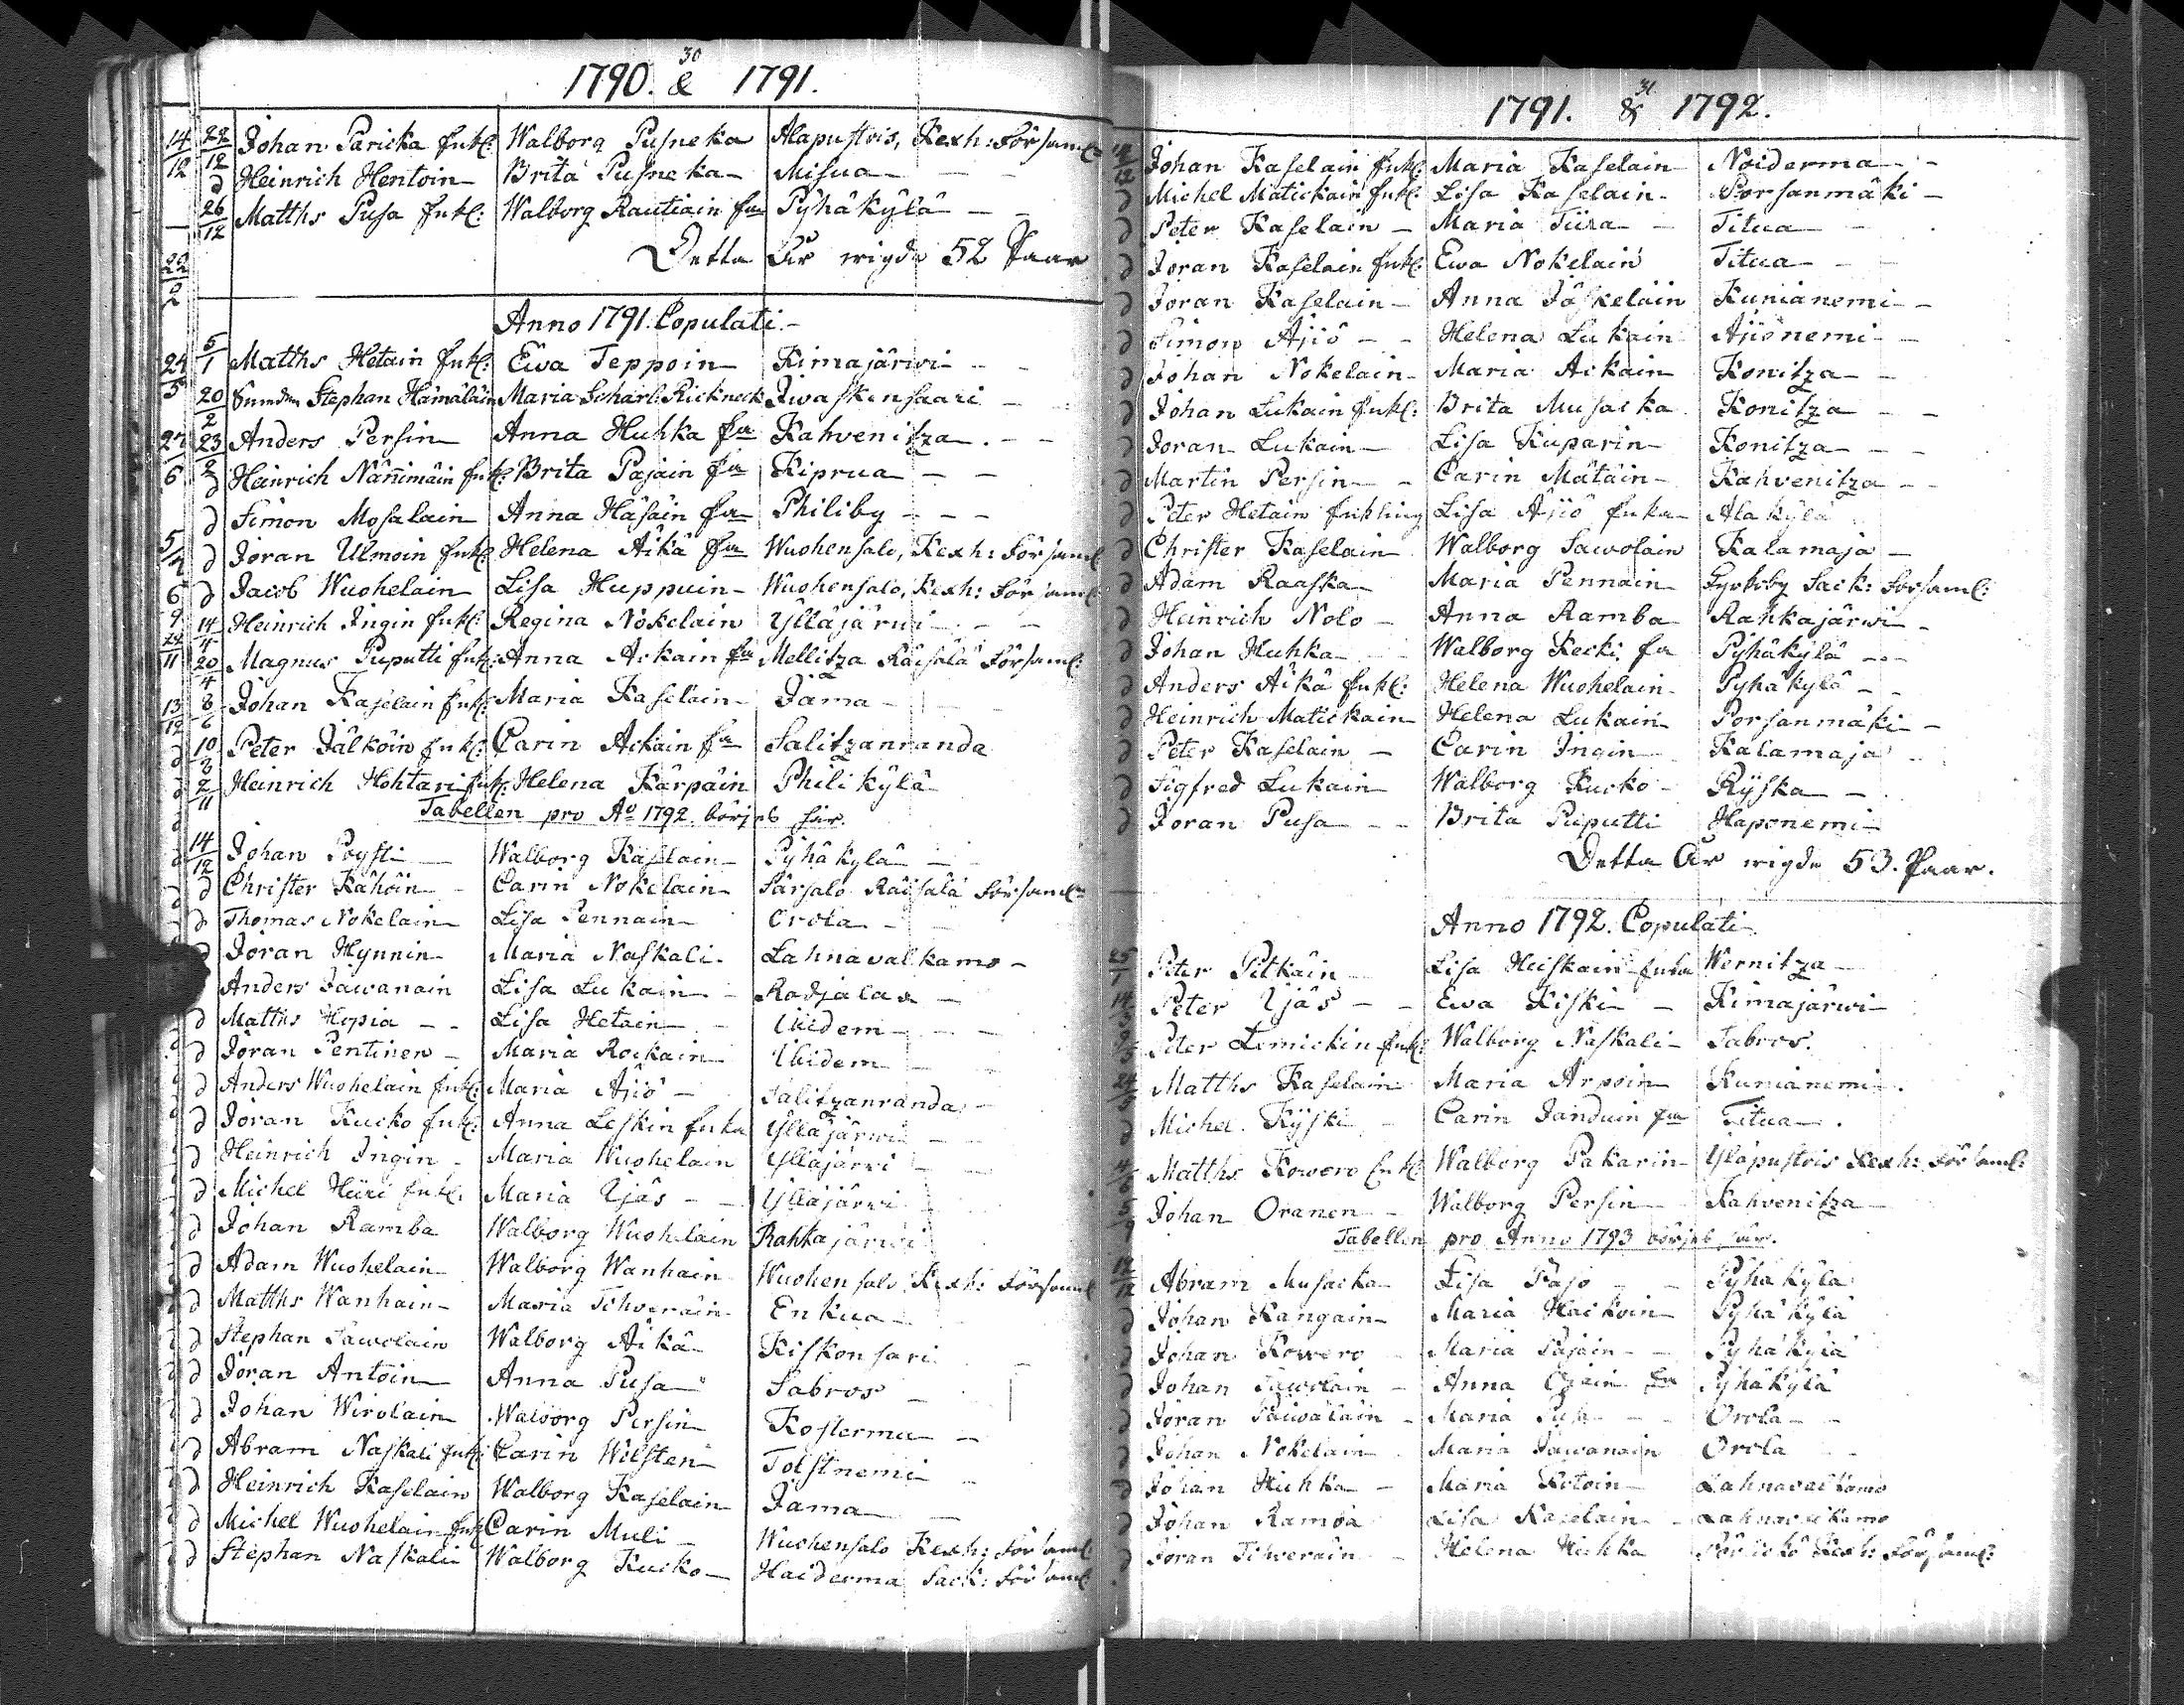 30
1790. & 1791.
22/12 Johan Paricka Enkl: Walborg Pusneka Alapustois, Kexh: Församl:
d Heinrich Hentoin Brita Pusneka Misua
26/12 Matths Pusa Enkl: Walborg Rautiain Ea Pyhäkylä
Detta År wigde 52 Paar
Anno 1791. Copulati.
5/1 Matths Hetain Enkl: Ewa Teppoin Kimajärwi
20/2 Stephan Hämäläin Maria Scharl: Rickneck Iwaskensaari
23/2 Anders Persin Anna Huhka Ea Kahvenitza
d Heinrich Nän̄imäin Enkl: Brita Pajain Ea Kiprua
d Simon Mosalain Anna Häsäin Ea Philiby
d Jöran Ulmoin Enkl: Helena Äikä Ea Wuohensalo, Kexh: Församl:
d Jacob Wuohelain Lisa Huppuin Wuohensalo, Kexh: Församl:
14/4 Heinrich Ingin Enkl: Regina Nokelain Ylläjärwi
20/4 Magnus Puputti Enkl: Anna Askain Ea Mellitza Räisälä Församl:
6/6 Johan Kaselain Enkl: Maria Kaselain Jama
10/ Peter Jälköin Enkl: Carin Askain Ea Salitzanranda
2/11 Heinrich Hohtari Enkl: Helena Kärpäin Philikylä
Tabellen pro Ao 1792. börjas här.
14/12 Johan Poysti Walborg Kaselain Pyhäkylä
d Christer Kähöin Carin Nokelain Särsalo Räisälä Församl:
d Thomas Nokelain Lisa Pennain Orola
d Jöran Hynnin Maria Naskali Lahnavalkamo
Anders Jawanain Lisa Lukain Radjalax
d Matths Hopia Lisa Hetain Ibidem
d Jöran Pentinen Maria Rockain Ibidem
d Anders Wuohelain Enkl: Maria Äjiö Salitzanranda
d Jöran Kucko Enkl: Anna Leskin Enka Ylläjärwi
d Heinrich Ingin Maria Wuohelain Ylläjärwi
d Michel Hiiri Enkl: Maria Yjäs Ylläjärwi
d Johan Ramba Walborg Wuohelain Rahkajärwi
d Adam Wuohelain Walborg Wanhain Wuohensalo Kexh: Församl:
d Matths Wanhain Maria Tihveräin Enkua
d Stephan Sawolain Walborg Äikä Kiskonsari
d Jöran Antoin Anna Pusa Sabros
d Johan Wirolain Walborg Persin Kosterma
d Abram Naskali Enkl: Carin Wilsten Tolstnemi
d Heinrich Kaselain Walborg Kaselain Jama
d Michel Wuohelain Enkl: Carin Muli Wuohensalo Kexh: Församl:
d Stephan Naskali Walborg Kucko Haiderma Sack: Församl:
31
1791. & 1792.
14/12 Johan Kaselain Enkl: Maria Kaselain Noiderma
d Michel Matickain Enkl: Lisa Kaselain Porsanmäki
d Peter Kaselain Maria Tiira Titua
d Jöran Kaselain Enkl: Ewa Nokelain Titua
d Jöran Kaselain Anna Jöskeläin Kunianemi
d Simon Äjiö Helena Lukain Äjiönemi
d Johan Nokelain Maria Askain Konitza
d Johan Lukain Enkl: Brita Musacka Konitza
d Jöran Lukain Lisa Kuparin Konitza
d Martin Persin Carin Mätäin Kahvenitza
d Peter Hetain Enkling Lisa Äjiö Enka Alakylä
d Christer Kaselain Walborg Sawolain Kalamaja
d Adam Raaska Maria Pennain Sack: Församl:
d Heinrich Nolo Anna Ramba Rahkajärwi
d Johan Huhka Walborg Kecki Ea Pyhäkylä
d Anders Äikä Enkl: Helena Wuohelain Pyhäkylä
d Heinrich Matickain Helena Lukain Porsanmäki
d Peter Kaselain Carin Ingin Kalamaja
d Sigfred Lukain Walborg Kucko Ryska
d Jöran Pusa Brita Puputti Haponemi
Detta År wigde 53. Paar.
Anno 1792. Copulati
Peter Pitkäin Lisa Heiskain Enka Wernitza
Peter Yjäs Ewa Kiski Kimajärwi
Peter Lemickin Enkl: Walborg Naskali Sabros.
Matths Kaselain Maria Arpoin Kunianemi
d Michel Kyski Carin Janduin Ea Titua
Matths Kowero Enkl: Walborg Pakarin Yläpustois Kexh: Församl:
Johan Oranen Walborg Persin Kahvenitza
Tabellen pro Anno 1793 börjas här.
Abram Musacka Lisa Paso Pyhäkylä
d Johan Kangain Maria Haikoin Pyhäkylä
d Johan Kowero Maria Pajain Pyhäkylä
d Johan Sawolain Anna Ea Pyhäkylä
d Jöran Paiwäläin Maria Pusa Orola
d Johan Nokelain Maria Jawanain Orola
d Johan Huhka Maria Kotoin Lahnavalkamo
d Johan Ramba Lisa Kaselain Lahnavalkamo
d Jöran Tihveräin Helena Huhka Kexh: Församl: